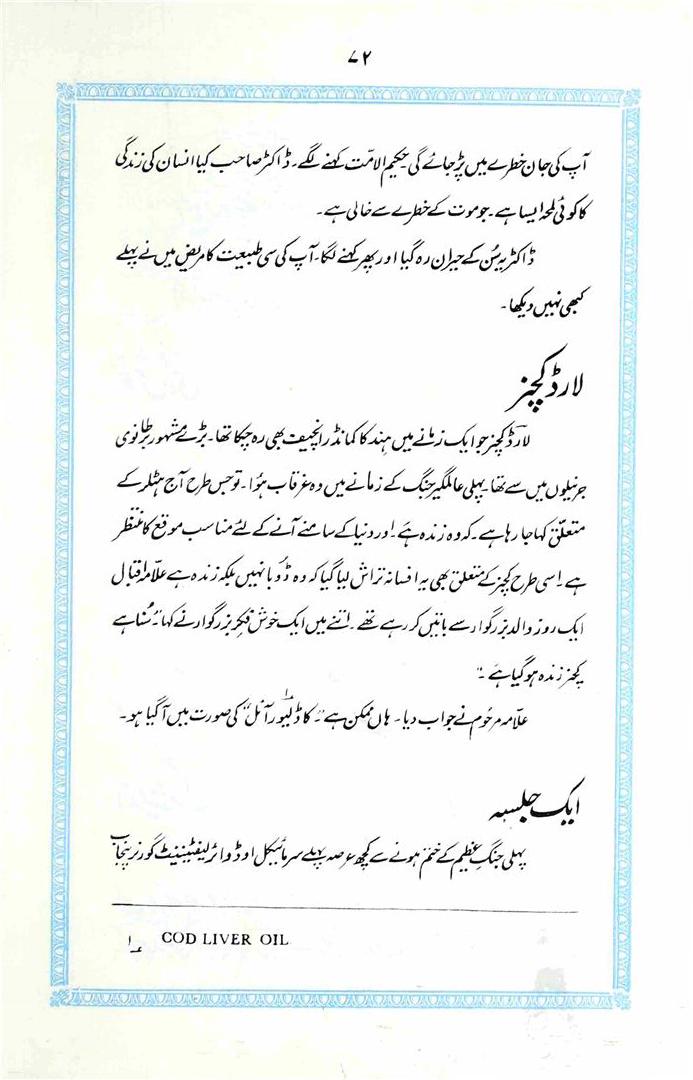 ۷۲
آپ کی جان خطرے میں پڑ جائے گی حکیم الامّت کہنے لگے۔ ڈاکٹر صاحب کیا انسان کی زندگی
کا کوئی لمحہ ایسا ہے۔ جو موت کے خطرے سے خالی ہے۔
ڈاکٹر یہ سُن کے حیران رہ گیا اور پھر کہنے لگا۔ آپ کی سی طبیعت کا مریض میں نے پہلے
کبھی نہیں دیکھا۔
لارڈ کچنر
لارڈ کچنر جو ایک زمانے میں ہند کا کمانڈر انچیف بھی رہ چکا تھا۔ بڑے مشہور برطانوی
جرنیلوں میں سے تھا۔ پہلی عالمگیر جنگ کے زمانے میں وہ غرقاب ہوُا۔ تو جس طرح آج ہٹلر کے
متعلّق کہا جا رہا ہے۔ کہ وہ زندہ ہے۔ اور دنیا کے سامنے آنے کے لئے مناسب موقع کا منتظر
ہے۔ اسی طرح کچنر کے متعلق بھی یہ افسانہ تراش لیا گیا کہ وہ ڈوبا نہیں بلکہ زندہ ہے علّامہ اقبال
ایک روز والد بزرگوار سے باتیں کر رہے تھے۔ اتنے میں ایک خوش فکر بزرگوار نے کہا۔ "سُنا ہے
کچنر زندہ ہو گیا ہے۔"
علّامہ مرحُوم نے جواب دیا۔ ہاں ممکن ہے "۔ کاڈ لیور آئل"۱ کی صورت میں آ گیا ہو۔
ایک جلسہ
پہلی جنگِ عظیم کے ختم ہونے سے کچھ عرصہ پہلے سر مائیکل اوڈوائر لیفٹیننٹ گورنر پنجاب
۱ COD LIVER OIL